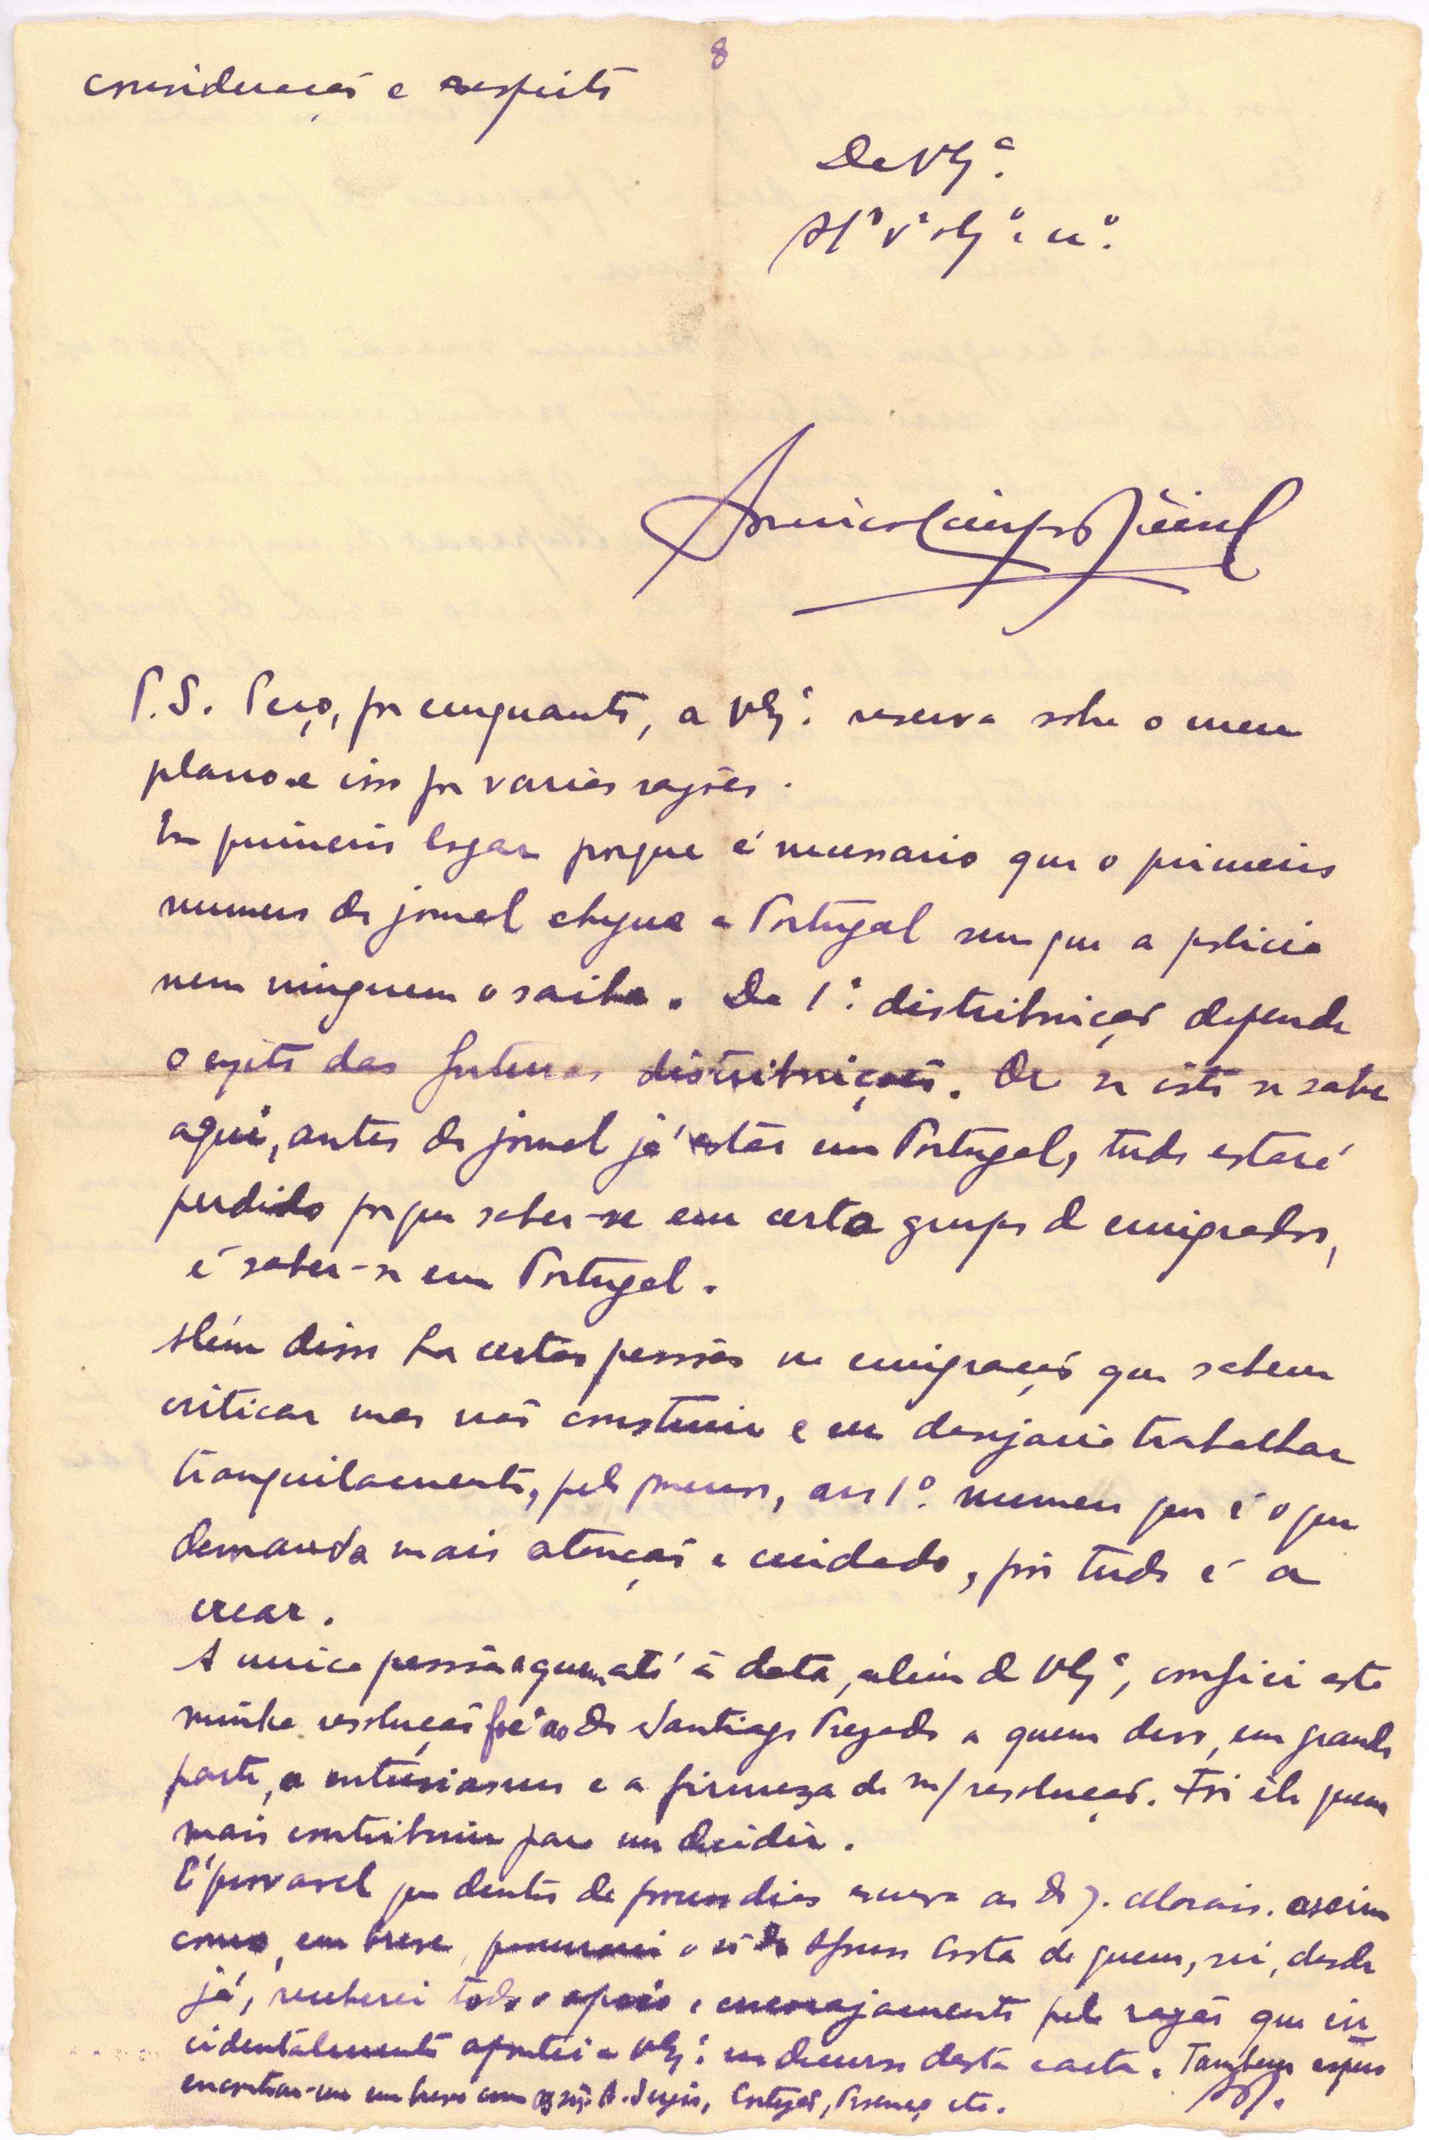 8
consideração e respeito
De V Ex.ª
P.S. Peço, por emquanto, a V Ex.ª reserva sobre o meu
plano e isso por varias razões.
Em primeiro logar porque é necessario que o primeiro
numero do jornal chegue a Portugal sem que a policia
nem ninguem o saiba. Da 1.ª distribuição depende
o exito das futuras distribuições. Ora se isto se sabe
aqui, antes do jornal já estar em Portugal, tudo estará
perdido porque saber-se em certo grupo d emigrados,
é saber-se em Portugal.
Além disso ha certas pessôas na emigração que sabem
criticar mas não construir e eu desejaria trabalhar
tranquilamente, pelo menos, ao 1.º numero que é o que
demanda mais atenção e cuidado, pois tudo é a
crear.
A unica pessôa a quem até á data, além d V Ex.ª, confiei esta
minha resolução foi ao Dr Santiago Prezado a quem devo, em grande
parte, o entusiasmo e a firmeza da m/ resolução. Foi êle quem
mais contribuiu para me decidir.
É provavel que dentro de poucos dias escreva ao Dr J. Morais. assim
como, em breve, procurarei o sr. Dr Afonso Costa de quem, sei, desde
já, receberei todo o apoio e encorajamento pela razão que in-
cidentalmente apontei a V Ex.ª no decurso desta carta. Tambem espero
encontrar-me em breve com os srs. A. Sergio, Cortezão, Proença etc.